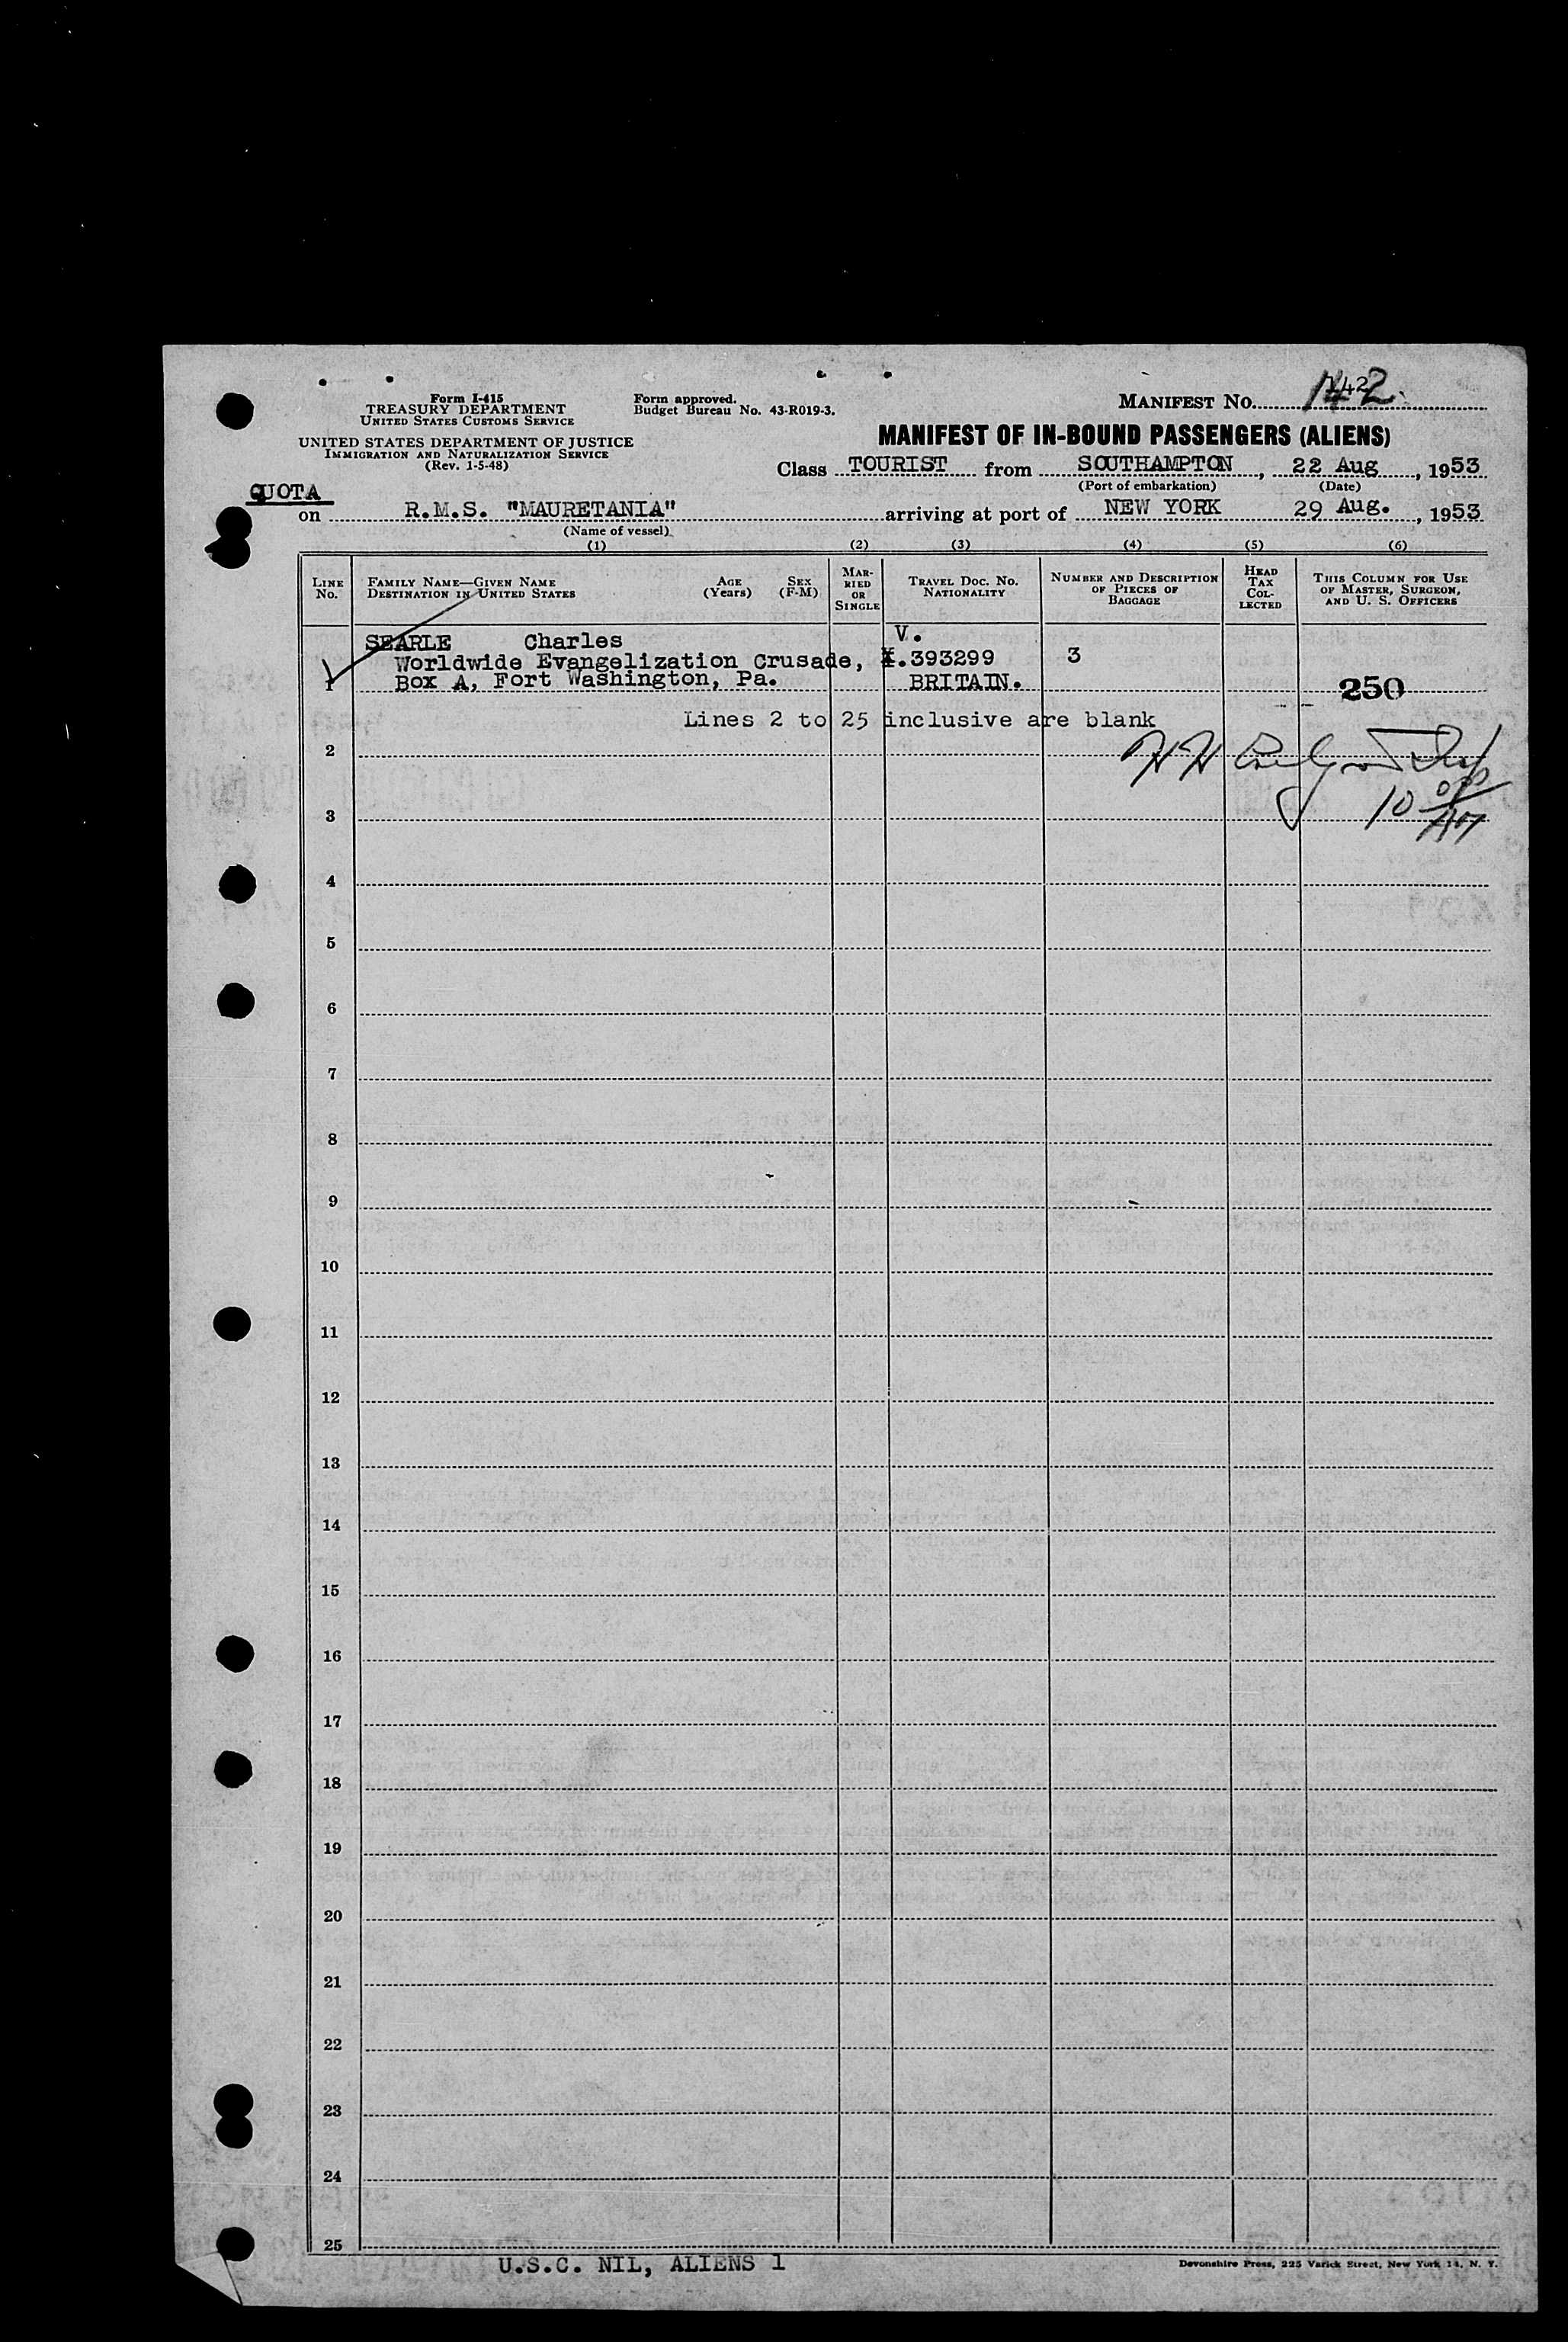 Form I-415
TREASURY DEPARTMENT
UNITED STATES CUSTOMS SERVICE
UNITED STATES DEPARTMENT OF JUSTICE
IMMIGRATION AND NATURALIZATION SERVICE
(Rev. 1-5-48)
Form approved.
Budget Bureau No. 43-R019-3.
MANIFEST NO. 142
MANIFEST OF IN-BOUND PASSENGERS (ALIENS)
Class TOURIST from SOUTHAMPTON, 22 Aug, 1953
(Port of embarkation) (Date)
QUOTA
on R.M.S. "MAURETANIA" arriving at port of NEW YORK 29 Aug., 1953
(Name of vessel)
(1) (2) (3) (4) (5) (6)
LINE NO. FAMILY NAME—GIVEN NAME DESTINATION IN UNITED STATES AGE (Years) SEX (F-M) MARRIED OR SINGLE TRAVEL DOC. NO. NATIONALITY NUMBER AND DESCRIPTION OF PIECES OF BAGGAGE HEAD TAX COLLECTED THIS COLUMN FOR USE OF MASTER, SURGEON, AND U. S. OFFICERS
SEARLE Charles V.
Worldwide Evangelization Crusade, I.393299 3
1 Box A, Fort Washington, Pa. BRITAIN. 250
Lines 2 to 25 inclusive are blank
2
3 10
4
5
6
7
8
9
10
11
12
13
14
15
16
17
18
19
20
21
22
23
24
25
U.S.C. NIL, ALIENS 1
Devonshire Press, 225 Varick Street, New York 14, N. Y.